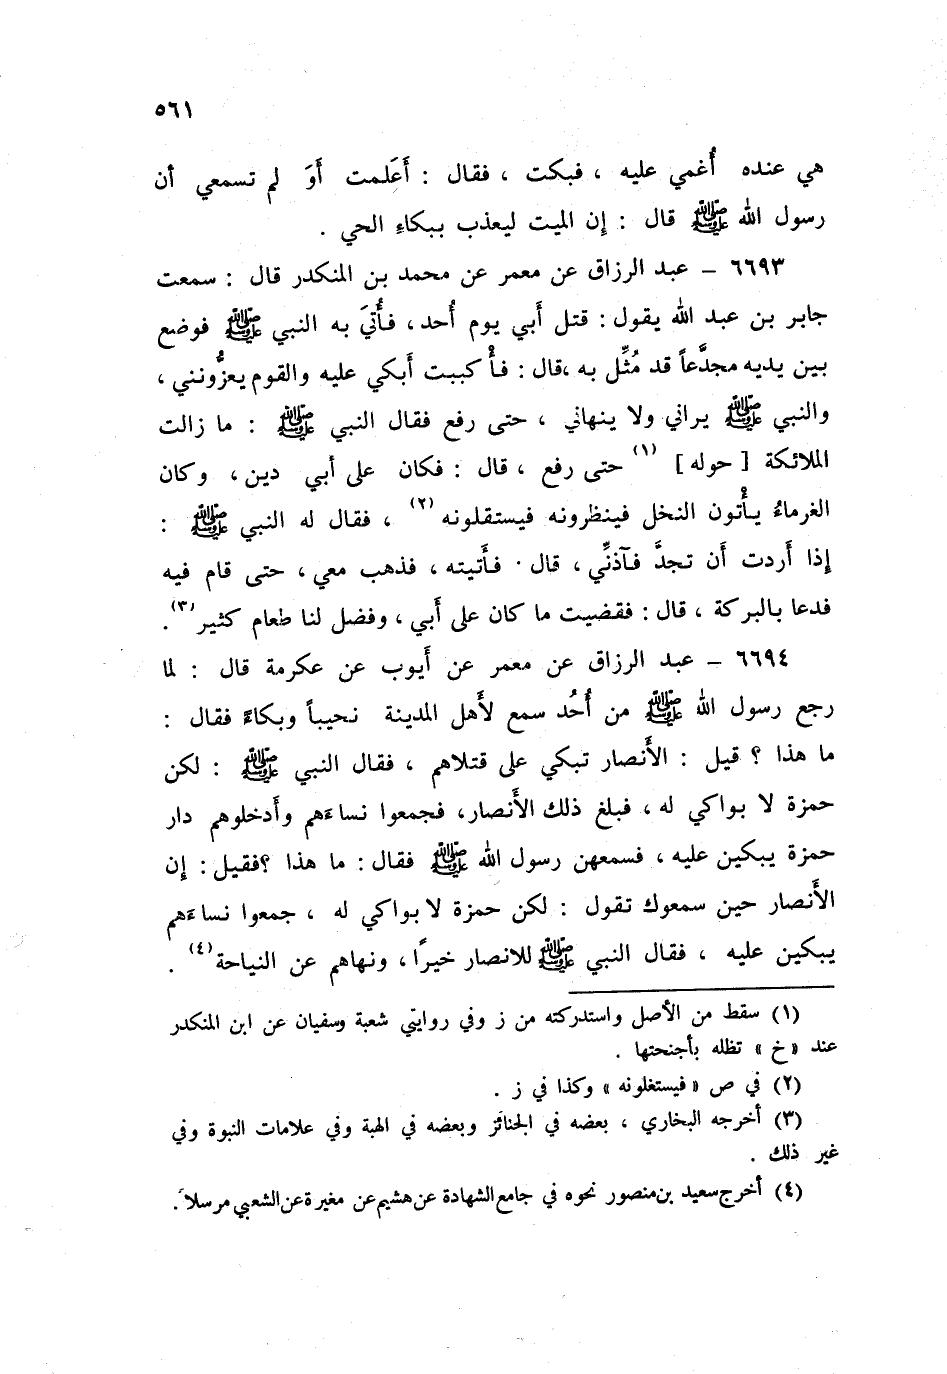 ٥٦١
هي عنده أُغمي عليه ، فبكت ، فقال : أَعَلمت أَوَ لم تسمعي أن
رسول الله ﷺ قال : إن الميت ليعذب ببكاءِ الحي .
٦٦٩٣ – عبد الرزاق عن معمر عن محمد بن المنكدر قال : سمعت
جابر بن عبد الله يقول : قتل أَبي يوم أُحد، فأُتيَ به النبي ﷺ فوضع
بين يديه مجدَّعاً قد مُثِّل به ،قال : فأُكببت أَبكي عليه والقوم يعزُّونني ،
والنبي ﷺ يراني ولا ينهاني ، حتى رفع فقال النبي ﷺ : ما زالت
الملائكة [ حوله ] (١) حتى رفع ، قال : فكان على أبي دين ، وكان
الغرماءُ يأْتون النخل فينظرونه فيستقلونه (٢) ، فقال له النبي ﷺ :
إذا أَردت أَن تجدَّ فآذنِّي ، قال · فأَتيته ، فذهب معي ، حتى قام فيه
فدعا بالبركة ، قال : فقضيت ما كان على أَبي ، وفضل لنا طعام كثير (٣) .
٦٦٩٤ – عبد الرزاق عن معمر عن أَيوب عن عكرمة قال : لما
رجع رسول الله ﷺ من أُحُد سمع لأَهل المدينة نحيباً وبكاءً فقال :
ما هذا ؟ قيل : الأَنصار تبكي على قتلاهم ، فقال النبي ﷺ : لكن
حمزة لا بواكي له ، فبلغ ذلك الأَنصار، فجمعوا نساءَهم وأَدخلوهم دار
حمزة يبكين عليه ، فسمعهن رسول الله ﷺ فقال : ما هذا ؟فقيل : إن
الأَنصار حين سمعوك تقول : لكن حمزة لا بواكي له ، جمعوا نساءَهم
يبكين عليه ، فقال النبي ﷺ للانصار خيرًا ، ونهاهم عن النياحة (٤) .
(١) سقط من الأصل واستدركته من ز وفي روايتي شعبة وسفيان عن ابن المنكدر
عند «خ» تظله بأجنحتها .
(٢) في ص «فيستغلونه» وكذا في ز .
(٣) أخرجه البخاري ، بعضه في الجنائز وبعضه في الهبة وفي علامات النبوة وفي
غير ذلك .
(٤) أخرج سعيد بن منصور نحوه في جامع الشهادة عن هشيم عن مغيرة عن الشعبي مرسلاً .